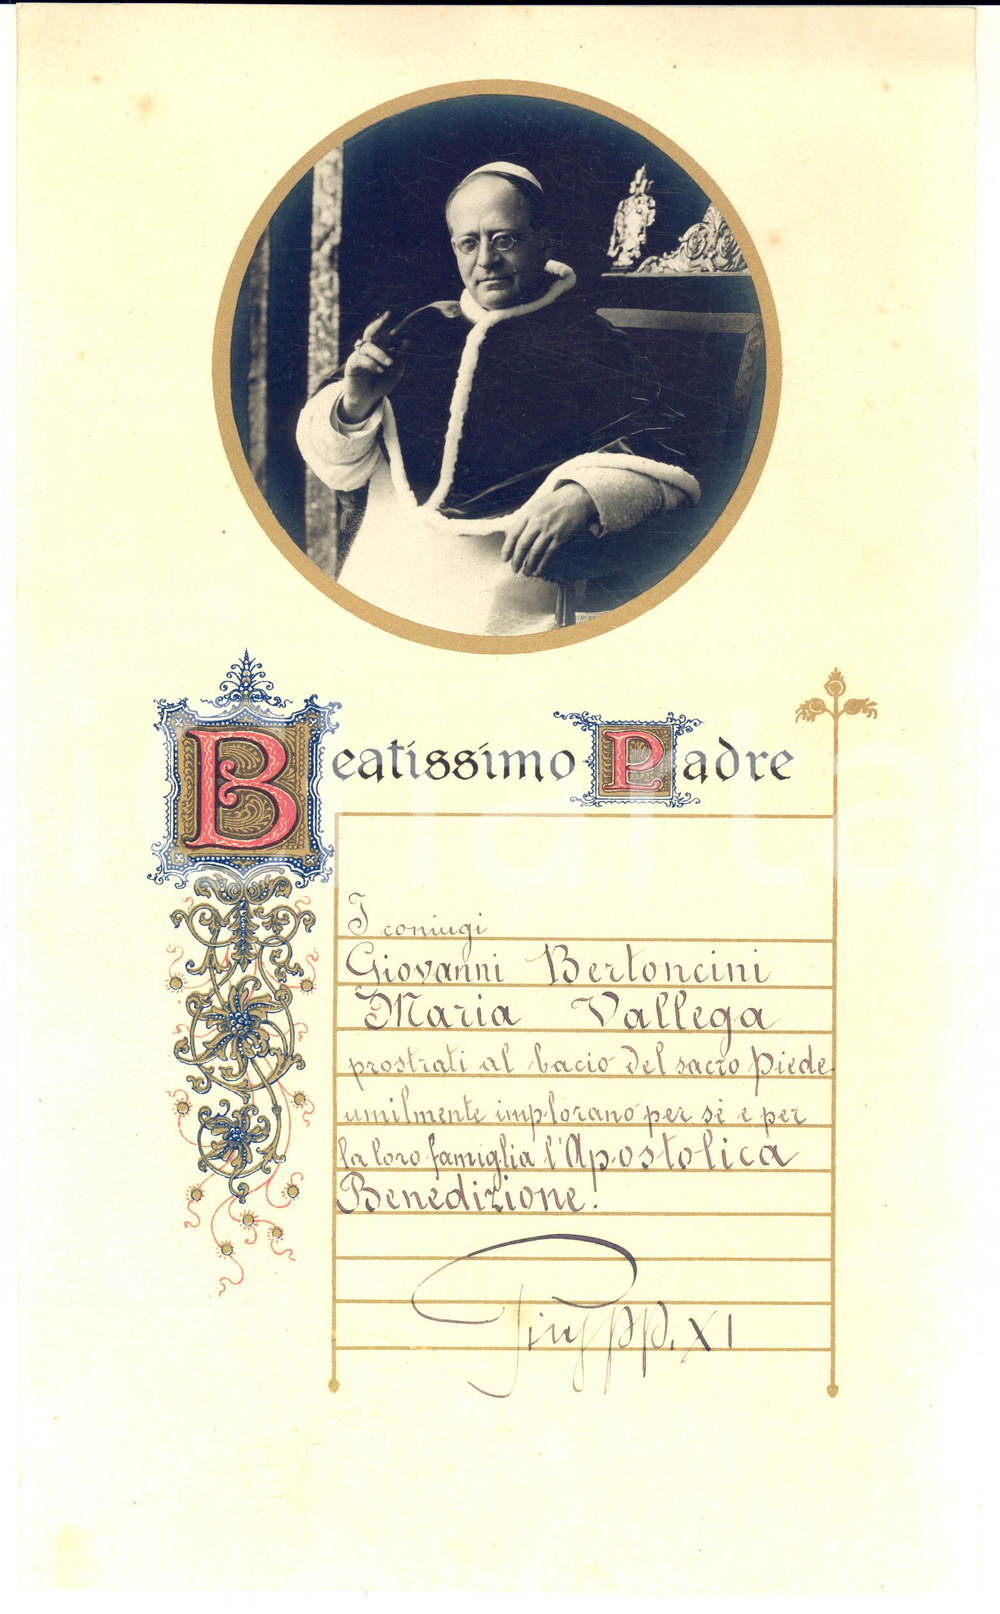 Beatissimo Padre
I coniugi
Giovanni Bertoncini
Maria Vallega
prostrati al bacio del sacro Piede
umilmente implorano per sè e per
la loro famiglia l'Apostolica
Benedizione.
Pius pp. XI